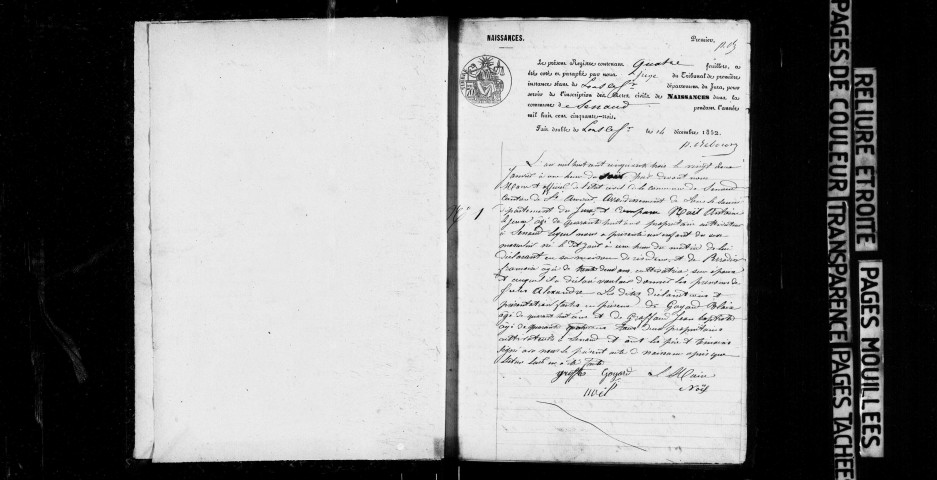 NAISSANCES.
Premier,
Le présent Registre contenant Quatre feuillets, a
été coté et paraphé par nous Juge du Tribunal de première
instance séant de Lons le Sr département du Jura, pour
servir de l'inscription des Actes civils de NAISSANCES dans la
commune de Senaud pendant l'année
mil huit cent cinquante-trois.
Fait double de Lons le Sr le 14 décembre 1852.
N° 1
L'an mil huit cent cinquante trois le vingt deux
Janvier à une heure du soir Par devant nous
Maire et officier de l'état civil de la commune de Senaud
Canton de St Amour, Arrondissement de Lons le Saunier
département du Jura, est Comparu Noël Antoine
agé de quarante huit ans propriétaire cultivateur
à Senaud lequel nous a présenté un enfant du sexe
masculin né le dit jour à une heure du matin de lui
déclarant en sa maison de résidence et de
françoise agée de trente deux ans cultivatrice, son épouse
et auquel il a déclaré vouloir donner les prénoms de
Jules Alexandre Les dites déclaration et
présentation faites en présence de Goyard
agé de quarante huit ans et de Graffard Jean baptiste
agé de quarante ans tous deux propriétaires
cultivateurs à Senaud et ont les père et témoins
signé avec nous le présent acte de naissance après que
lecture leur en a été faite
Goyard Le Maire
noël Noël
PAGES DE COULEUR TRANSPARENCE PAGES TACHÉE
RELIURE ÉTROITE PAGES MOUILLÉES